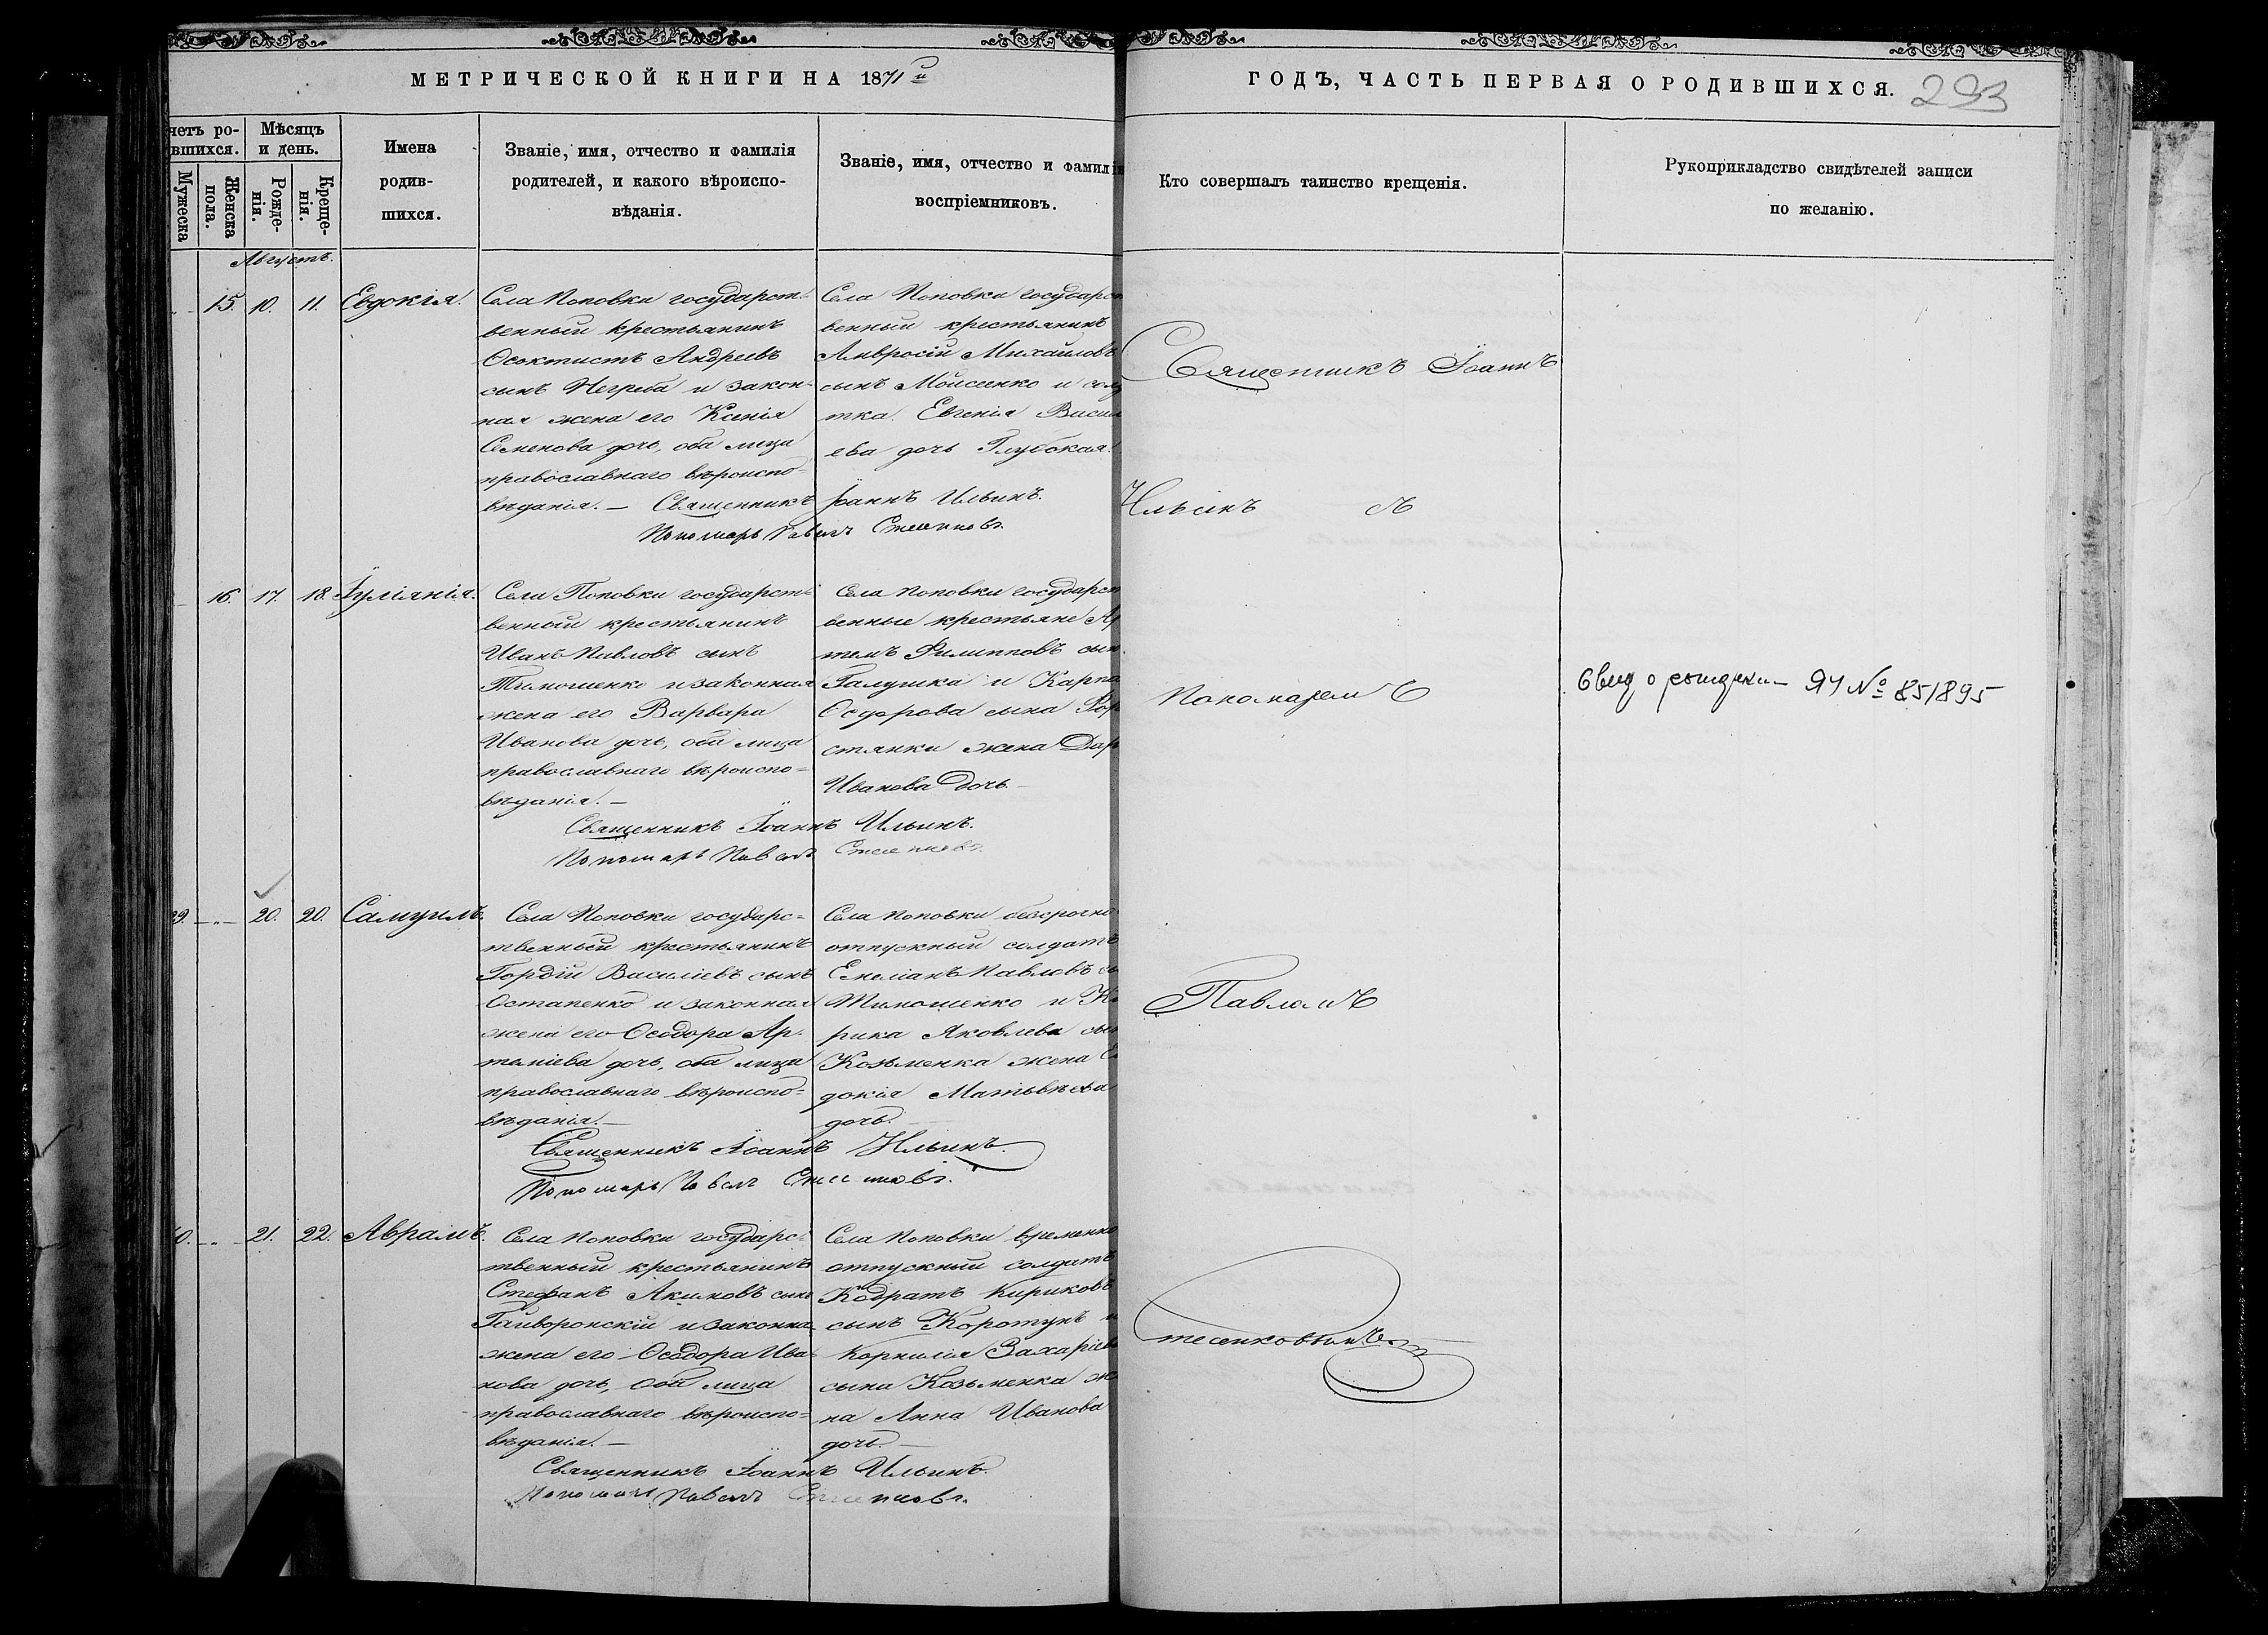 МЕТРИЧЕСКОЙ КНИГИ НА 1871й
ГОДЪ, ЧАСТЬ ПЕРВАЯ О РОДИВШИХСЯ.
293
четъ ро-
вшихся.
Мужеска
Женска
пола.
Мѣсяцъ
и день.
Рожде-
нія.
Креще-
нія.
Имена
родив-
шихся.
Званіе, имя, отчество и фамилія
родителей, и какого вѣроиспо-
вѣданія.
Званіе, имя, отчество и фамилі
воспріемниковъ.
Кто совершалъ таинство крещенія.
Рукоприкладство свидѣтелей записи
по желанію.
Августъ.
15. 10. 11. Евдокія.
Села Поповки государст-
венный крестьянинъ
Ѳеоктистъ Андреевъ
сынъ Негреба и закон-
ная жена его Ксенія
Семенова дочь, оба лица
православнаго вѣроиспо-
вѣданія. —
Села Поповки государст
венный крестьянинъ
Амвросій Михайловъ
сынъ Мойсеенко и сол
тка Евгенія Васил
ева дочь Глубокая.
Священникъ Іоаннъ Ильинъ.
Пономарь Павелъ
16. 17. 18. Іуліанія.
Села Поповки государст-
венный крестьянинъ
Иванъ Павловъ сынъ
Тимошенко и законная
жена его Варвара
Иванова дочь, оба лица
православнаго вѣроиспо-
вѣданія. —
Села Поповки государст
венные крестьяне Ар
темъ Филипповъ сын
Галушка и Карпа
Ѳедорова сына
стянки жена Дар
Иванова дочь. —
Священникъ Іоаннъ Ильинъ.
Пономарь Павелъ
39. — 20. 20. Самуилъ.
Села Поповки государс-
твенный крестьянинъ
Гордій Василіевъ сынъ
Остапенко и законная
жена его Ѳеодора Ар-
теміева дочь, оба лица
православнаго вѣроиспо-
вѣданія. —
Села Поповки безсрочно
отпускный солдатъ
Емеліанъ Павловъ сы
Тимошенко и Ки
рика Яковлева сын
Козьменка жена Ев
докія Матвѣева
дочь. —
Священникъ Іоаннъ Ильинъ.
Пономарь Павелъ
0. — 21. 22. Аврамъ.
Села Поповки государс-
твенный крестьянинъ
Стефанъ Акимовъ сынъ
Гайворонскій и законна
жена его Ѳеодора Ива-
нова дочь, оба лица
православнаго вѣроиспо-
вѣданія. —
Села Поповки временно
отпускный солдатъ
Кодратъ Кириковъ
сынъ Коротунъ и
Корнилія Захаріева
сына Козьменка же
на Анна Иванова
дочь. —
Священникъ Іоаннъ Ильинъ.
Пономарь Павелъ
Священникъ Іоаннъ
Ильинъ съ
Пономаремъ
Павломъ
№ 851895